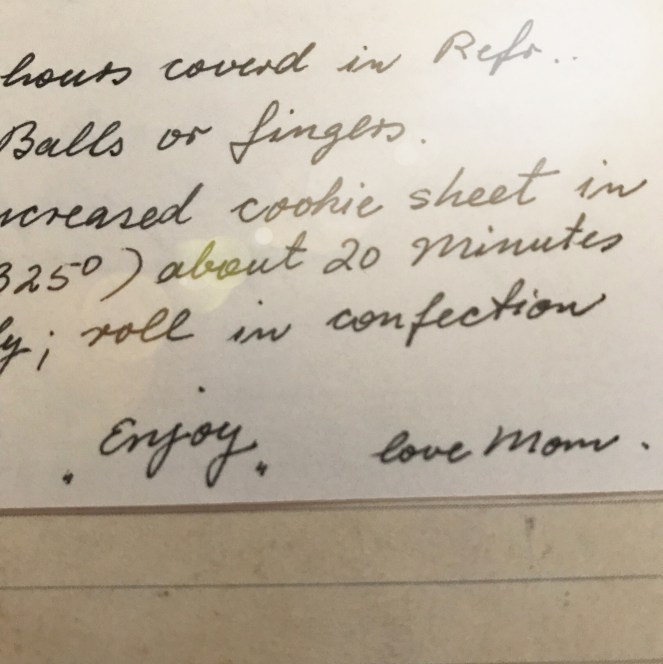 hours coverd in Refr..
Balls or fingers.
ncreased cookie sheet in
325°) about 20 minutes
ly; roll in confection
"Enjoy" love Mom.